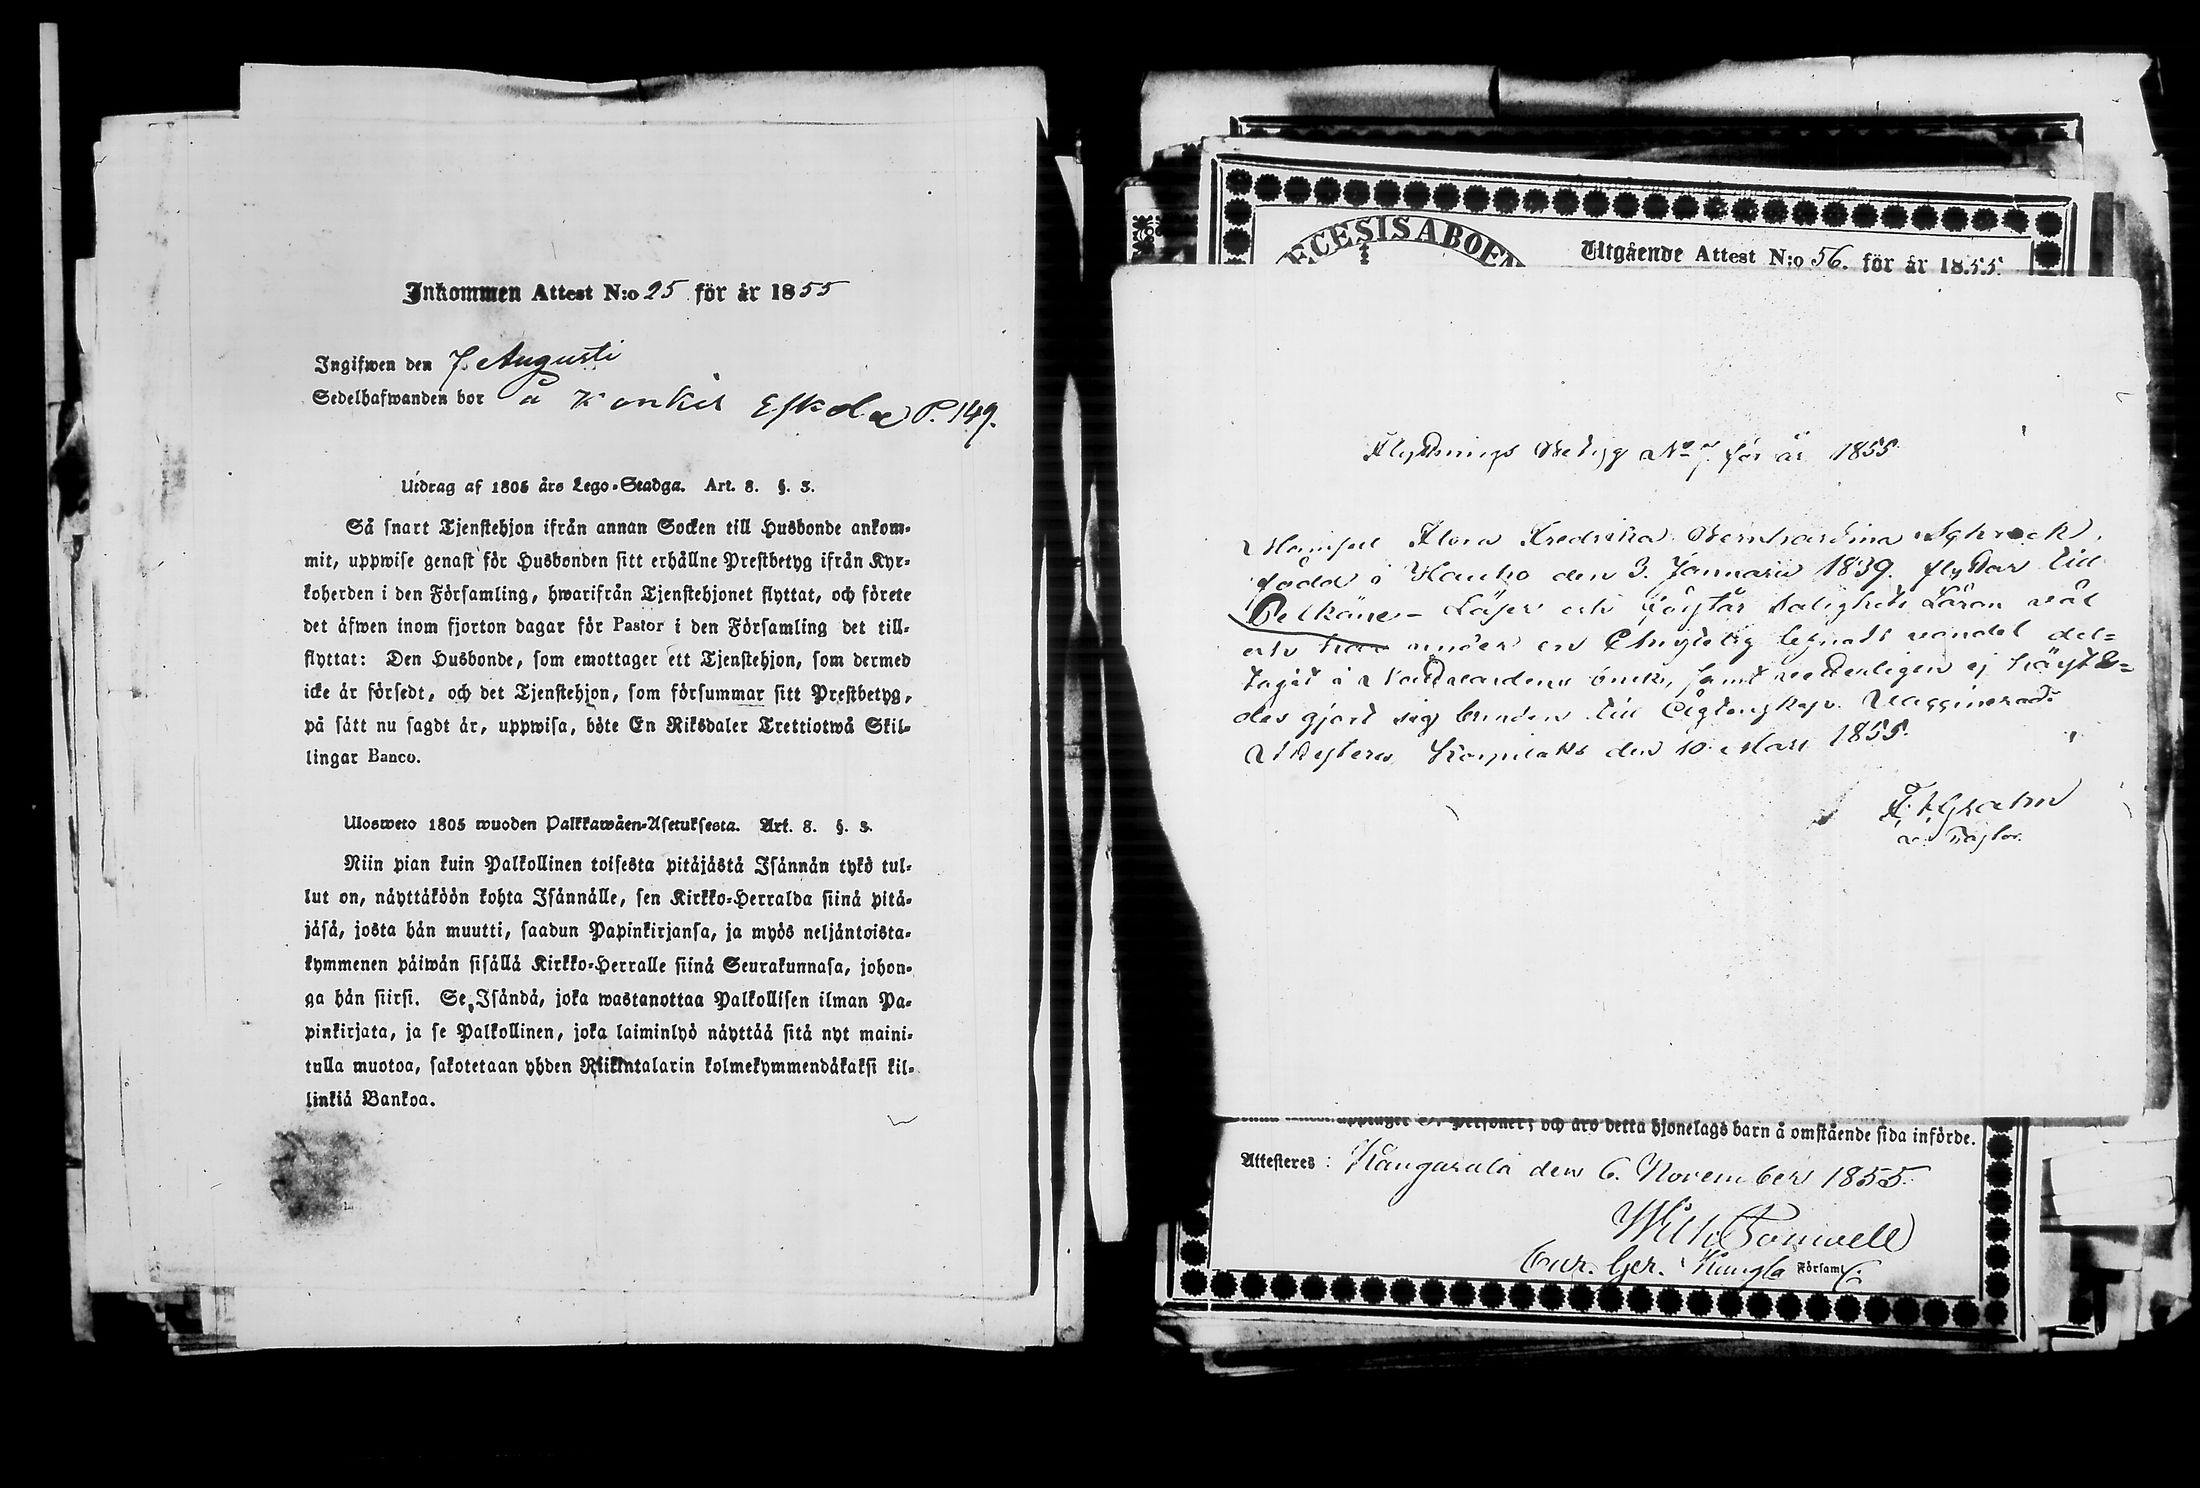 Inkommen Attest N:o 25 för år 1855
Ingifwen den 7 Augusti
Sedelhafwanden bor å Konkis Eskola P. 149.
Utdrag af 1805 års Lego-Stadga. Art. 8. §. 3.
Så snart Tjenstehjon ifrån annan Socken till Husbonde ankom-
mit, uppwise genast för Husbonden sitt erhållne Prestbetyg ifrån Kyr-
koherden i den Församling, hwarifrån Tjenstehjonet flyttat, och förete
det åfwen inom fjorton dagar för Pastor i den Församling det till-
flyttat: Den Husbonde, som emottager ett Tjenstehjon, som dermed
icke är försedt, och det Tjenstehjon, som försummar sitt Prestbetyg,
på sått nu sagdt är, uppwisa, böte En Riksdaler Trettiotwå Skil-
lingar Banco.
Ulosweto 1805 wuoden Palkkawåen-Asetuksesta. Art. 8. §. 3.
Niin pian kuin Palkollinen toisesta pitåjåstå Isånnån tykö tul-
lut on, nåyttåköön kohta Isånnålle, sen Kirkko-Herralda siinå pitå-
jåså, josta hån muutti, saadun Papinkirjansa, ja myös neljåntoista-
kymmenen påiwån sisållå Kirkko-Herralle siinå Seurakunnasa, johon-
ga hån siirsi. Se Isåndå, joka wastanottaa Palkollisen ilman Pa-
pinkirjata, ja se Palkollinen, joka laiminlyö nåyttåå sitå nyt maini-
tulla muotoa, sakotetaan yhden Riikintalarin kolmekymmendåkaksi kil-
linkiå Bankoa.
ECESIS ABOEN
Utgående Attest N:o 56. för år 1855.
Flyttnings Betyg No 7 för år 1855
Mamsell Flora Fredrika Bernhardina Schrock,
född i Hauho den 3. Januarii 1839. flyttar till
Pelkäne - Läser och förstår Salighets Läran väl
och har under en Christelig lefnads vandel del-
tagit i Nattvardens bruk, samt vetterligen ej
des gjort sig bunden till Ägtenskap. Vaccinerad.
den 10 Mars 1855.
F. Grahn
Pastor.
upptager personer; och åro detta hjonelags barn å omstående sida införde.
Attesteres: Kangasala den 6. November 1855.
Wilh.
Cur. Ger. Kangla Församl